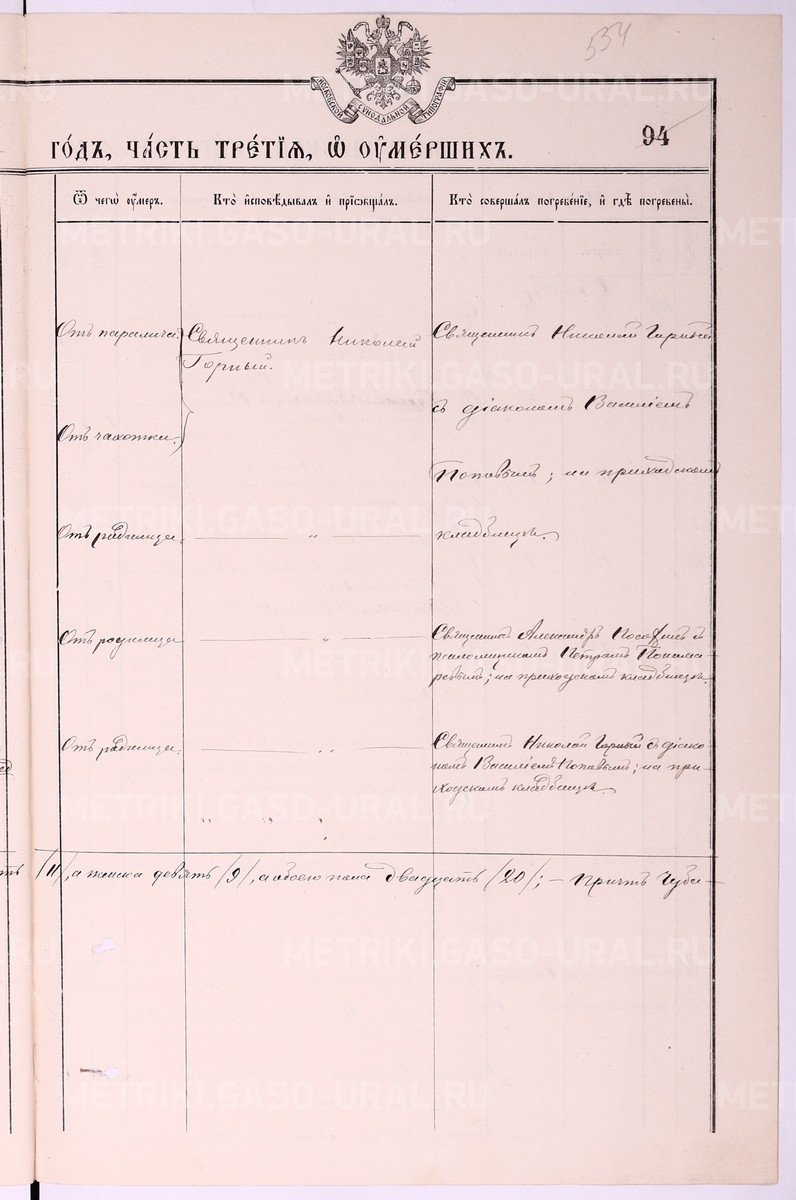 534
МОСКОВСКОЙ СѴНОДАЛЬНОЙ ТИПОГРАФІИ
94
ГО́ДЪ, ЧА́СТЬ ТРЕ́ТІѦ, Ѽ ОУМЕ́РШИХЪ.
Ѿ чегѡ̀ оу҆́меръ.
Кто̀ и҆сповѣ́дывалъ и҆ прїѡбща́лъ.
Кто̀ соверша́лъ погребе́нїе, и҆ гдѣ̀ погребены̀.
Отъ паралича.
Священникъ Николай
Горный.
Священникъ Николай Горный
съ діакономъ Василіемъ
Отъ чахотки.
Поповымъ; на приходскомъ
Отъ родимца. „
кладбищѣ.
Отъ родимца „
Священникъ Александръ съ
псаломщикомъ Петромъ Понома-
ревымъ; на приходскомъ кладбищѣ.
Отъ родимца. „
Священникъ Николай Горный съ діако-
номъ Василіемъ Поповымъ; на при-
ходскомъ кладбищѣ.
„ „ „
/11/, а женска девять /9/, а обоего пола двадцать /20/; – Причтъ Чуба-
METRIKI.GASO-URAL.RU